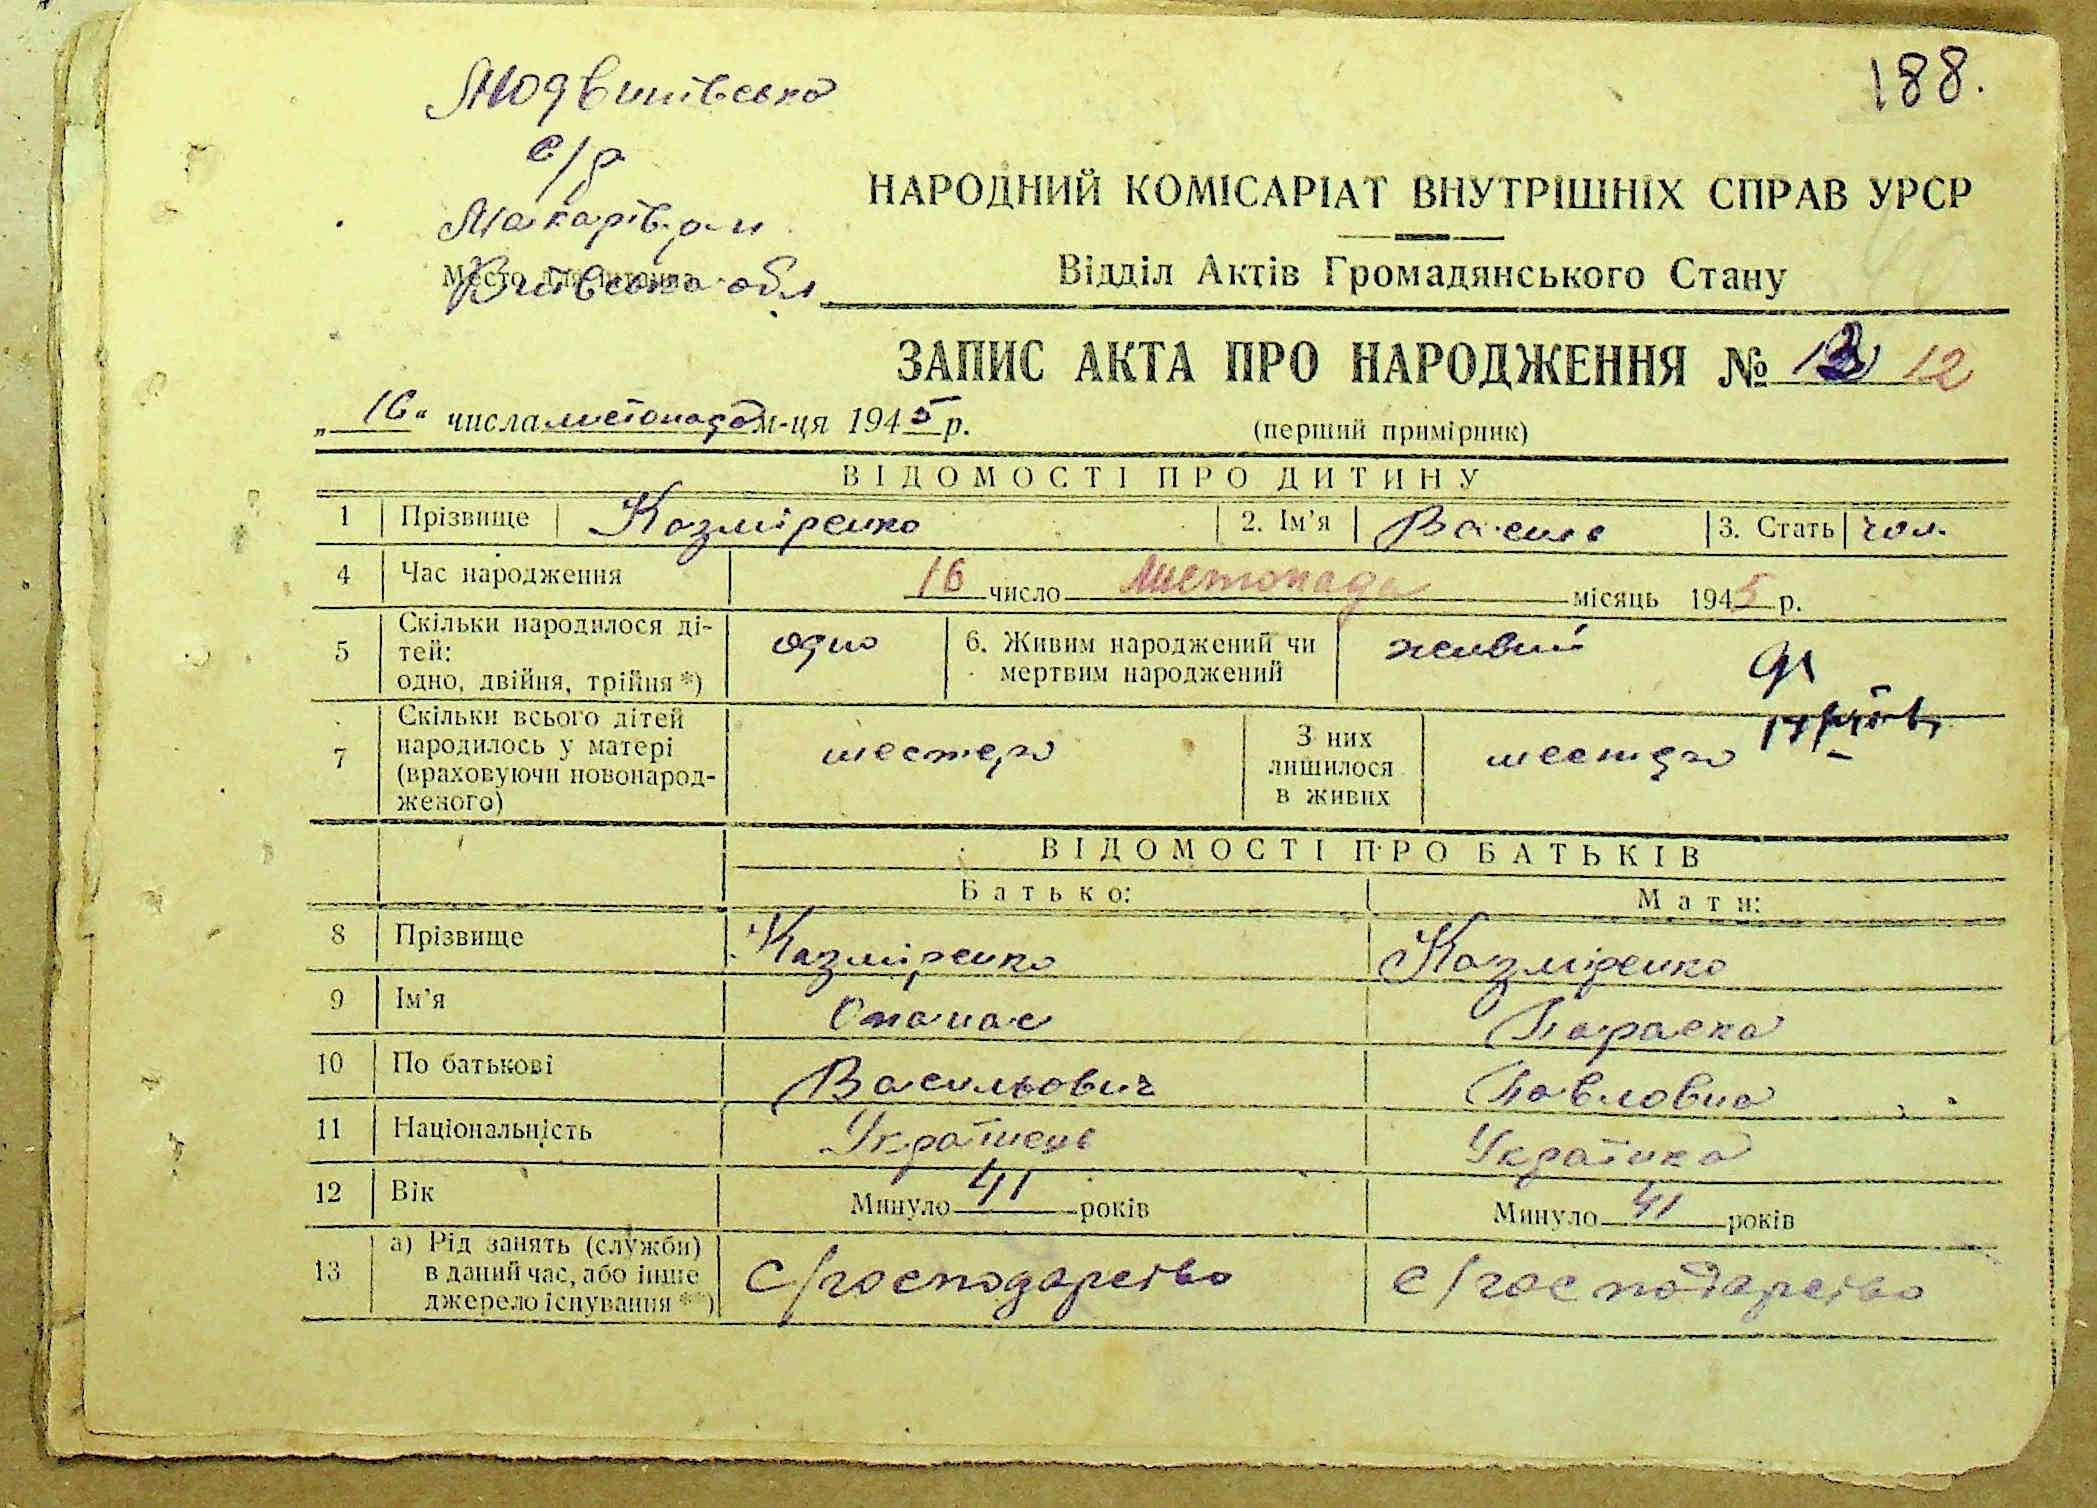 188.
Людвинівська
с/р
Макарів. р-н
Місце для штампа
Київської обл
НАРОДНИЙ КОМІСАРІАТ ВНУТРІШНІХ СПРАВ УРСР
Відділ Актів Громадянського Стану
ЗАПИС АКТА ПРО НАРОДЖЕННЯ № 12
„16" числа листопада м-ця 1945 р.
(перший примірник)
ВІДОМОСТІ ПРО ДИТИНУ
1 Прізвище Казміренко 2. Ім'я Василь 3. Стать чол.
4 Час народження 16 число листопада місяць 1945 р.
5 Скільки народилося ді-
тей:
одно, двійня, трійня *) одно 6. Живим народжений чи
мертвим народжений живий
7 Скільки всього дітей
народилось у матері
(враховуючи новонарод-
женого) шестеро З них
лишилося
в живих шестеро
ВІДОМОСТІ ПРО БАТЬКІВ
Батько: Мати:
8 Прізвище Казміренко Казміренко
9 Ім'я Опанас Параска
10 По батькові Васильович Павловна
11 Національність Українець Українка
12 Вік Минуло 41 років Минуло 41 років
13 а) Рід занять (служби)
в даний час, або інше
джерело існування **) с/господарство с/господарство